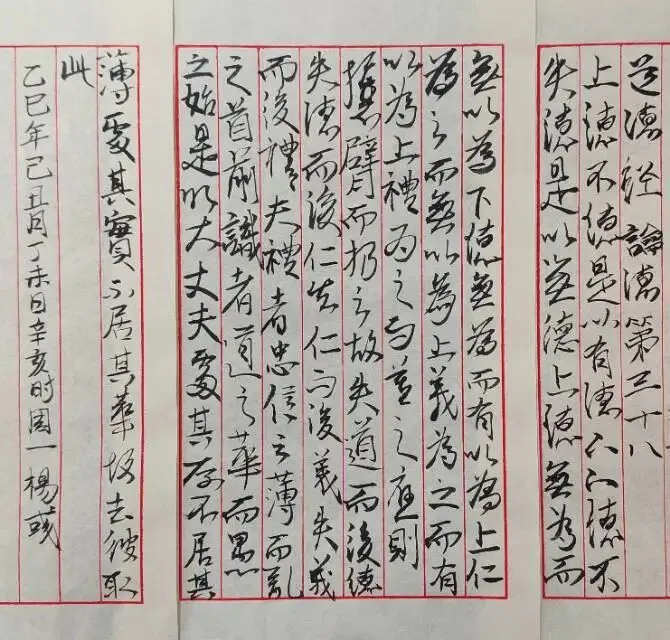 道德經論德第三十八
上德不德是以有德下德不
失德是以無德上德無為而
無以為下德無為而有以為上仁
為之而無以為上義為之而有
以為上禮為之而莫之應則
攘臂而扔之故失道而後德
失德而後仁失仁而後義失義
而後禮夫禮者忠信之薄而亂
之首前識者道之華而愚
之始是以大丈夫處其厚不居其
薄處其實不居其華故去彼取
此
乙巳年己丑月丁未日辛亥時周一楊彧